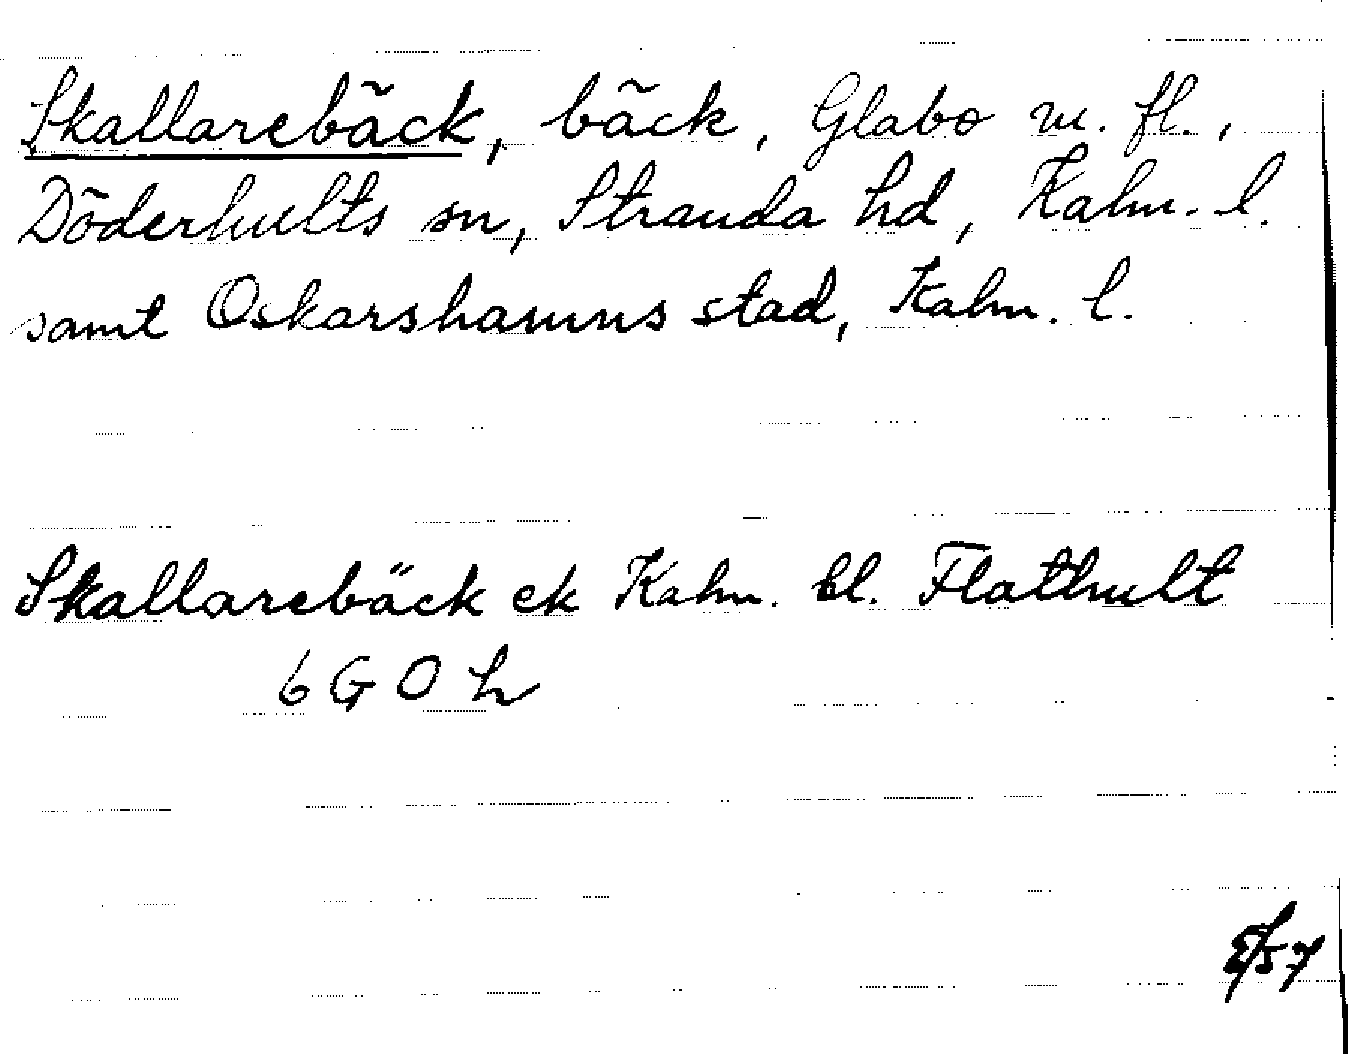 Skallarebäck, bäck, Glabo m. fl.,
Döderhults sn, Stranda hd, Kalm. l.
samt Oskarshamns stad, Kalm. l.
Skallarebäck ek Kalm. bl. Flathult
6 G O h